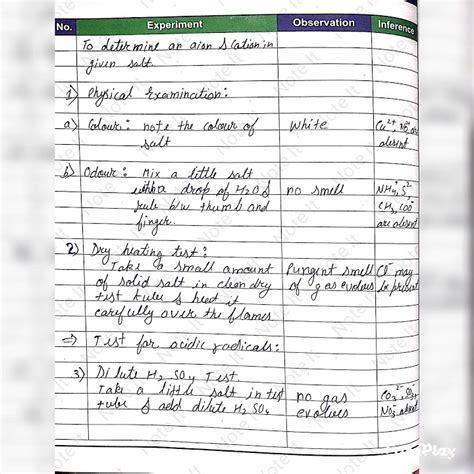 No. Experiment Observation Inference
To determine an aion & cation in
given salt.
1) Physical Examination:
a) Colour: note the colour of White Cu²⁺,
salt absent
b) Odour: Mix a little salt
with a drop of H₂O & no smell NH₄⁺, S²⁻
rub b/w thumb and CH₃COO⁻
finger. are absent
2) Dry heating test:
Take a small amount Pungent smell Cl⁻ may
of solid salt in clean dry of gas evolves be present
test tube & heat it
carefully over the flames
⇒) Test for acidic radicals:
3) Dilute H₂SO₄ Test.
Take a little salt in test no gas CO₃²⁻,
tube & add dilute H₂SO₄ evolves NO₂ absent